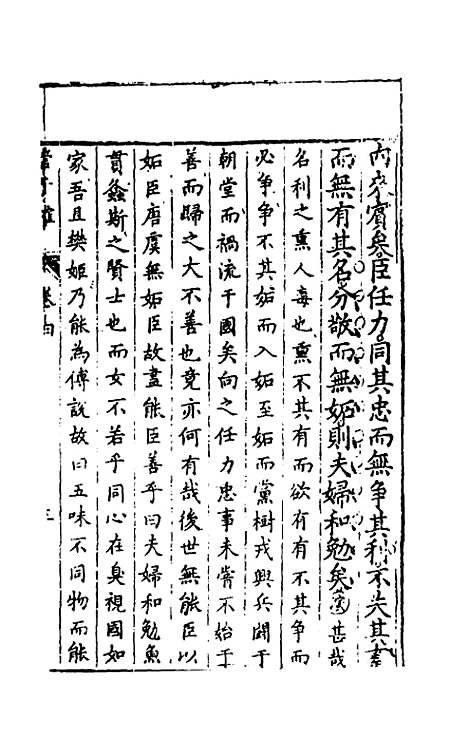 內來賓矣臣任力同其忠而無爭其利不失其善
而無有其名分敬而無妬則夫婦和勉矣甚哉
名利之熏人毒也熏不其有而欲有有不其爭而
必爭爭不其妬而入妬至妬而黨樹戎興兵鬭于
朝堂而禍流于國矣向之任力忠事未嘗不始于
善而歸之大不善也竟亦何有哉後世無能臣以
妬臣唐虞無妬臣故盡能臣善乎曰夫婦和勉魚
貫螽斯之賢士也而女不若乎同心在臭視國如
家吾且樊姬乃能為傅說故曰五味不同物而能
卷
三